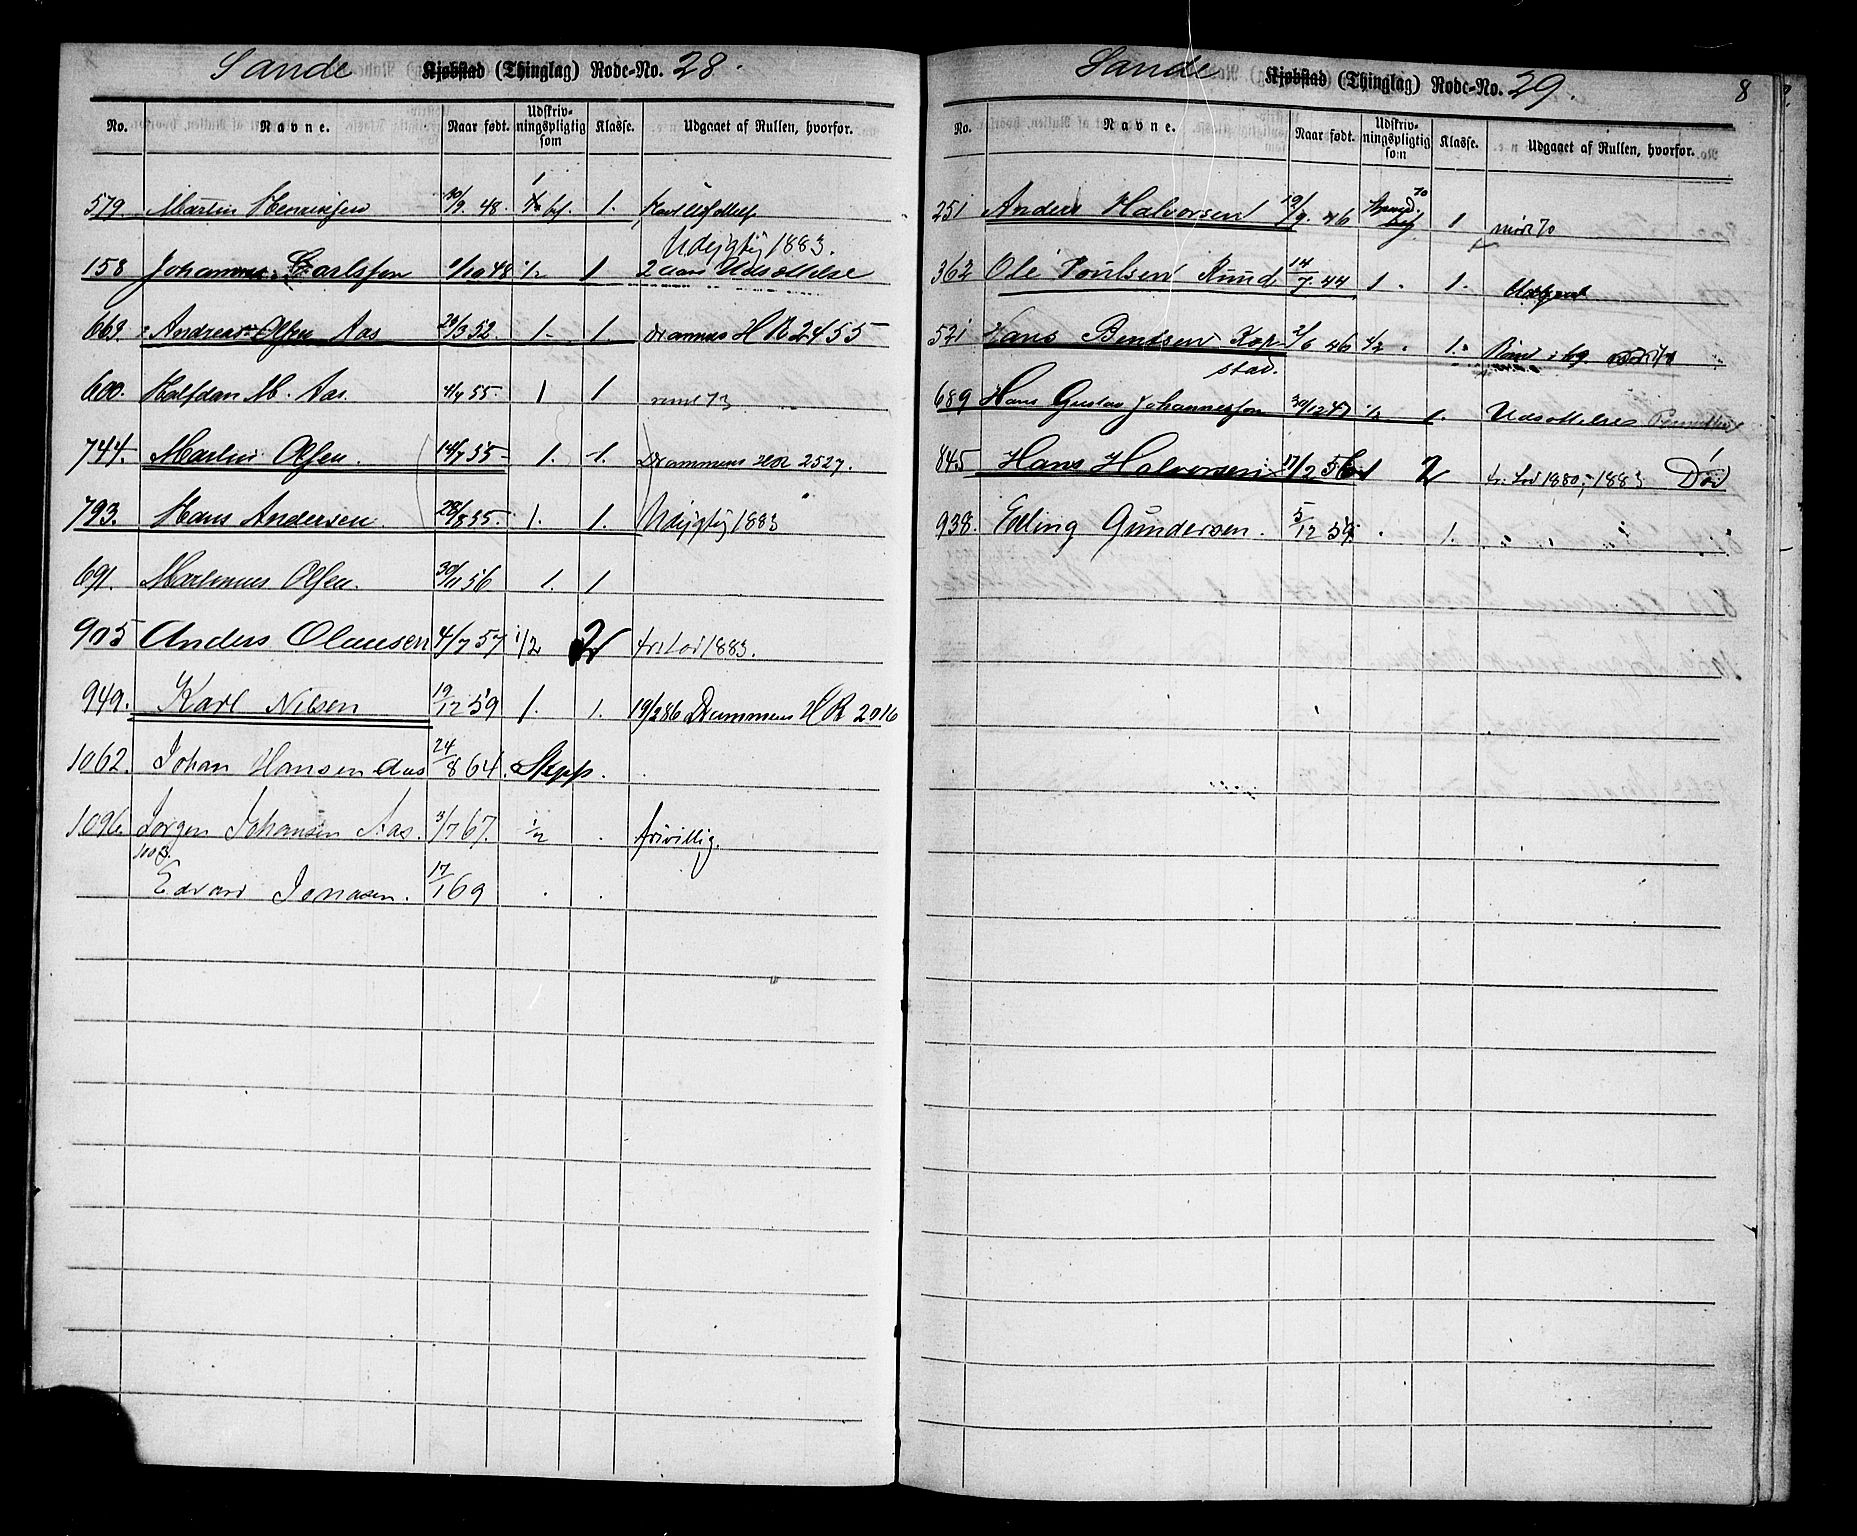 Sande Kjøbstad (Thinglag) Rode-No. 28.
No. Navne. Naar født. Udskrivningspligtig som Klasse. Udgaaet af Rullen, hvorfor.
579. Martin Henriksen 30/9. 48. 1.
Udygtig 1883.
158 Johannes Carlsen 9/10 48 1/2 1 2 aars Udsættelse
669. Andreas Olsen Aas 23/3 52. 1. 1. Drammens H R 2455
600. Halfdan M. Aas. 4/4 55. 1 1.
744. Martin Olsen. 14/7 55 1. 1. Drammens HR 2527.
793. Hans Andersen 28/8 55. 1. 1. Udygtig 1883
691. Martinus Olsen. 30/11 56 1. 1
905 Anders Olausen 4/7 57 1/2 2 fri Lod 1883.
949. Karl Nilsen 19/12 59 1. 1. 19/2 86 Drammens H R 2016
1062. Johan Hansen Aas 24/8 64.
1096. Jørgen Johansen Aas. 3/7 67. 1/2 . frivillig.
1003.
Edvard Jonasen. 17/1 69 . .
8
Sande Kjøbstad (Thinglag) Rode-No. 29.
No. Navne. Naar født. Udskrivningspligtig som Klasse. Udgaaet af Rullen, hvorfor.
251 Anders Halvorsen 19/9. 46 70 1
362 Ole Poulsen Ruud 14/7. 44 1. 1.
521 Hans Bentsen Kop- 2/6 46 1/2 . 1.
stad.
689 Hans Gustav Johannessen 30/12 47 1/2 1. Udsættelse
845 Hans Halvorsen 17/2 56 1 2 fri Lod 1880, 1883 Død
938. Edling Gundersen. 5/12 59. . 1.